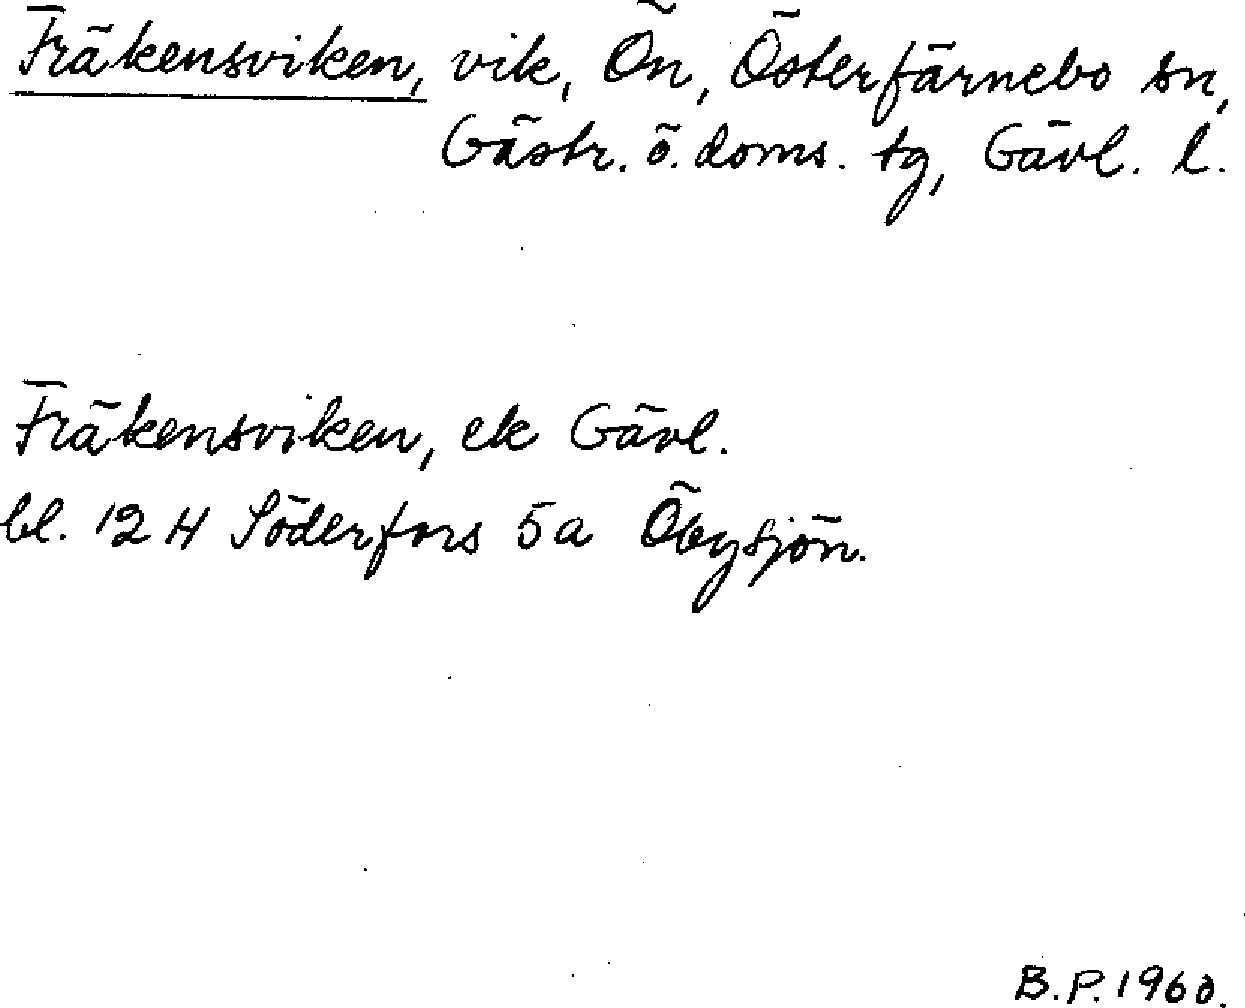 Fräkensviken, vik, Ön, Österfärnebo sn,
Gästr. ö. doms. tg, Gävl. l.
Fräkensviken, ek Gävl.
bl. 12 H Söderfors 5a Öbysjön.
B.P. 1960.